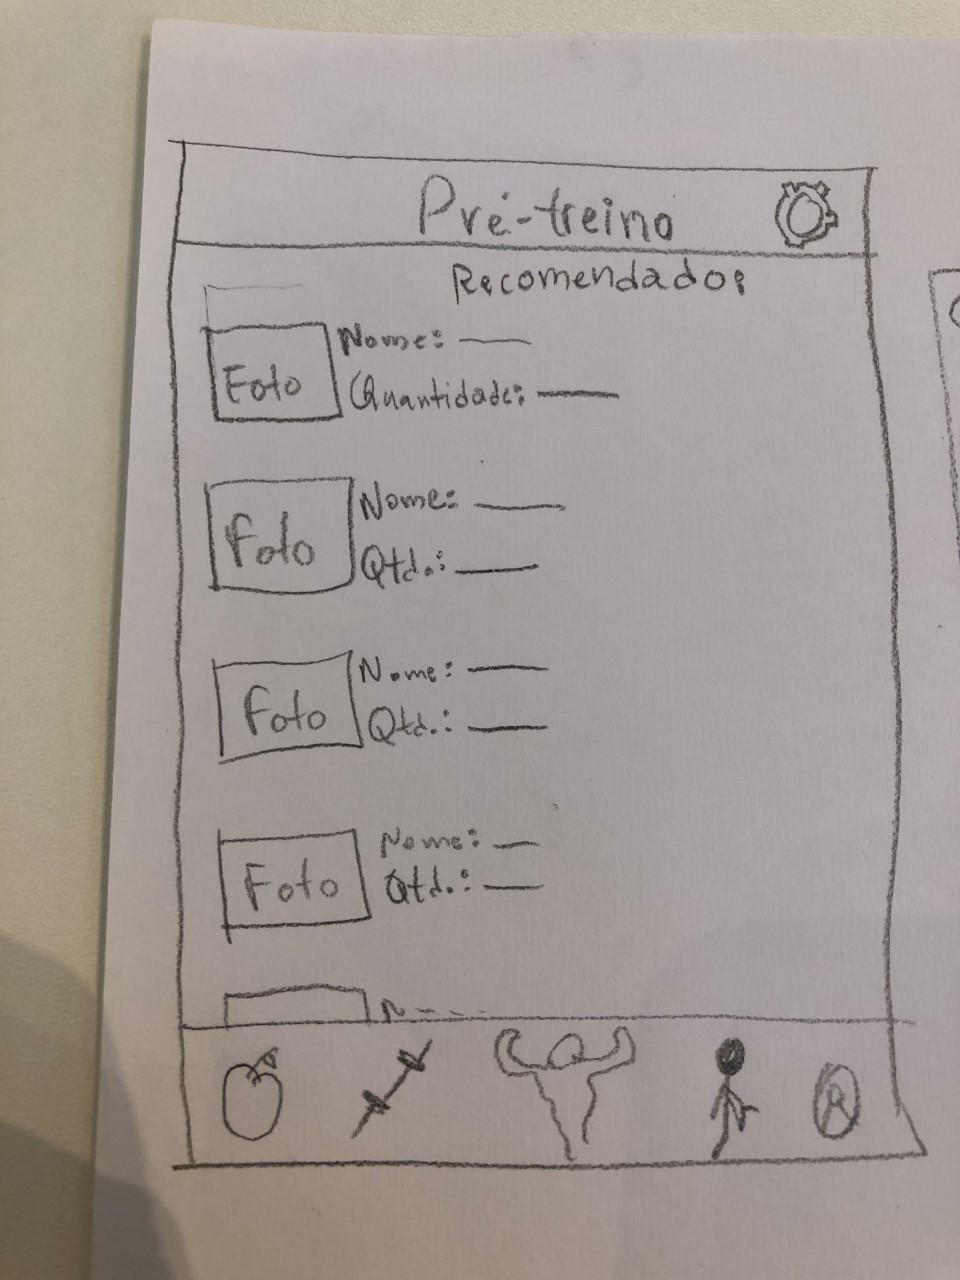 Pré-treino
Recomendado:
Foto
Nome:
Quantidade:
Foto
Nome:
Qtd.:
Foto
Nome:
Qtd.:
Foto
Nome:
Qtd.:
N----